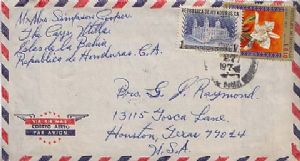 Mr. Abe Simpson Cooper
The Cayy Utila
Islas de la Bahia
Republica de Honduras, C.A.
REPUBLICA DE HONDURAS, C.A.
VIA AIR MAIL
CORREO AEREO
PAR AVION
Mrs. G. J. Raymond
13115 Tosca Lane.
Houston, Texas 77024
U.S.A